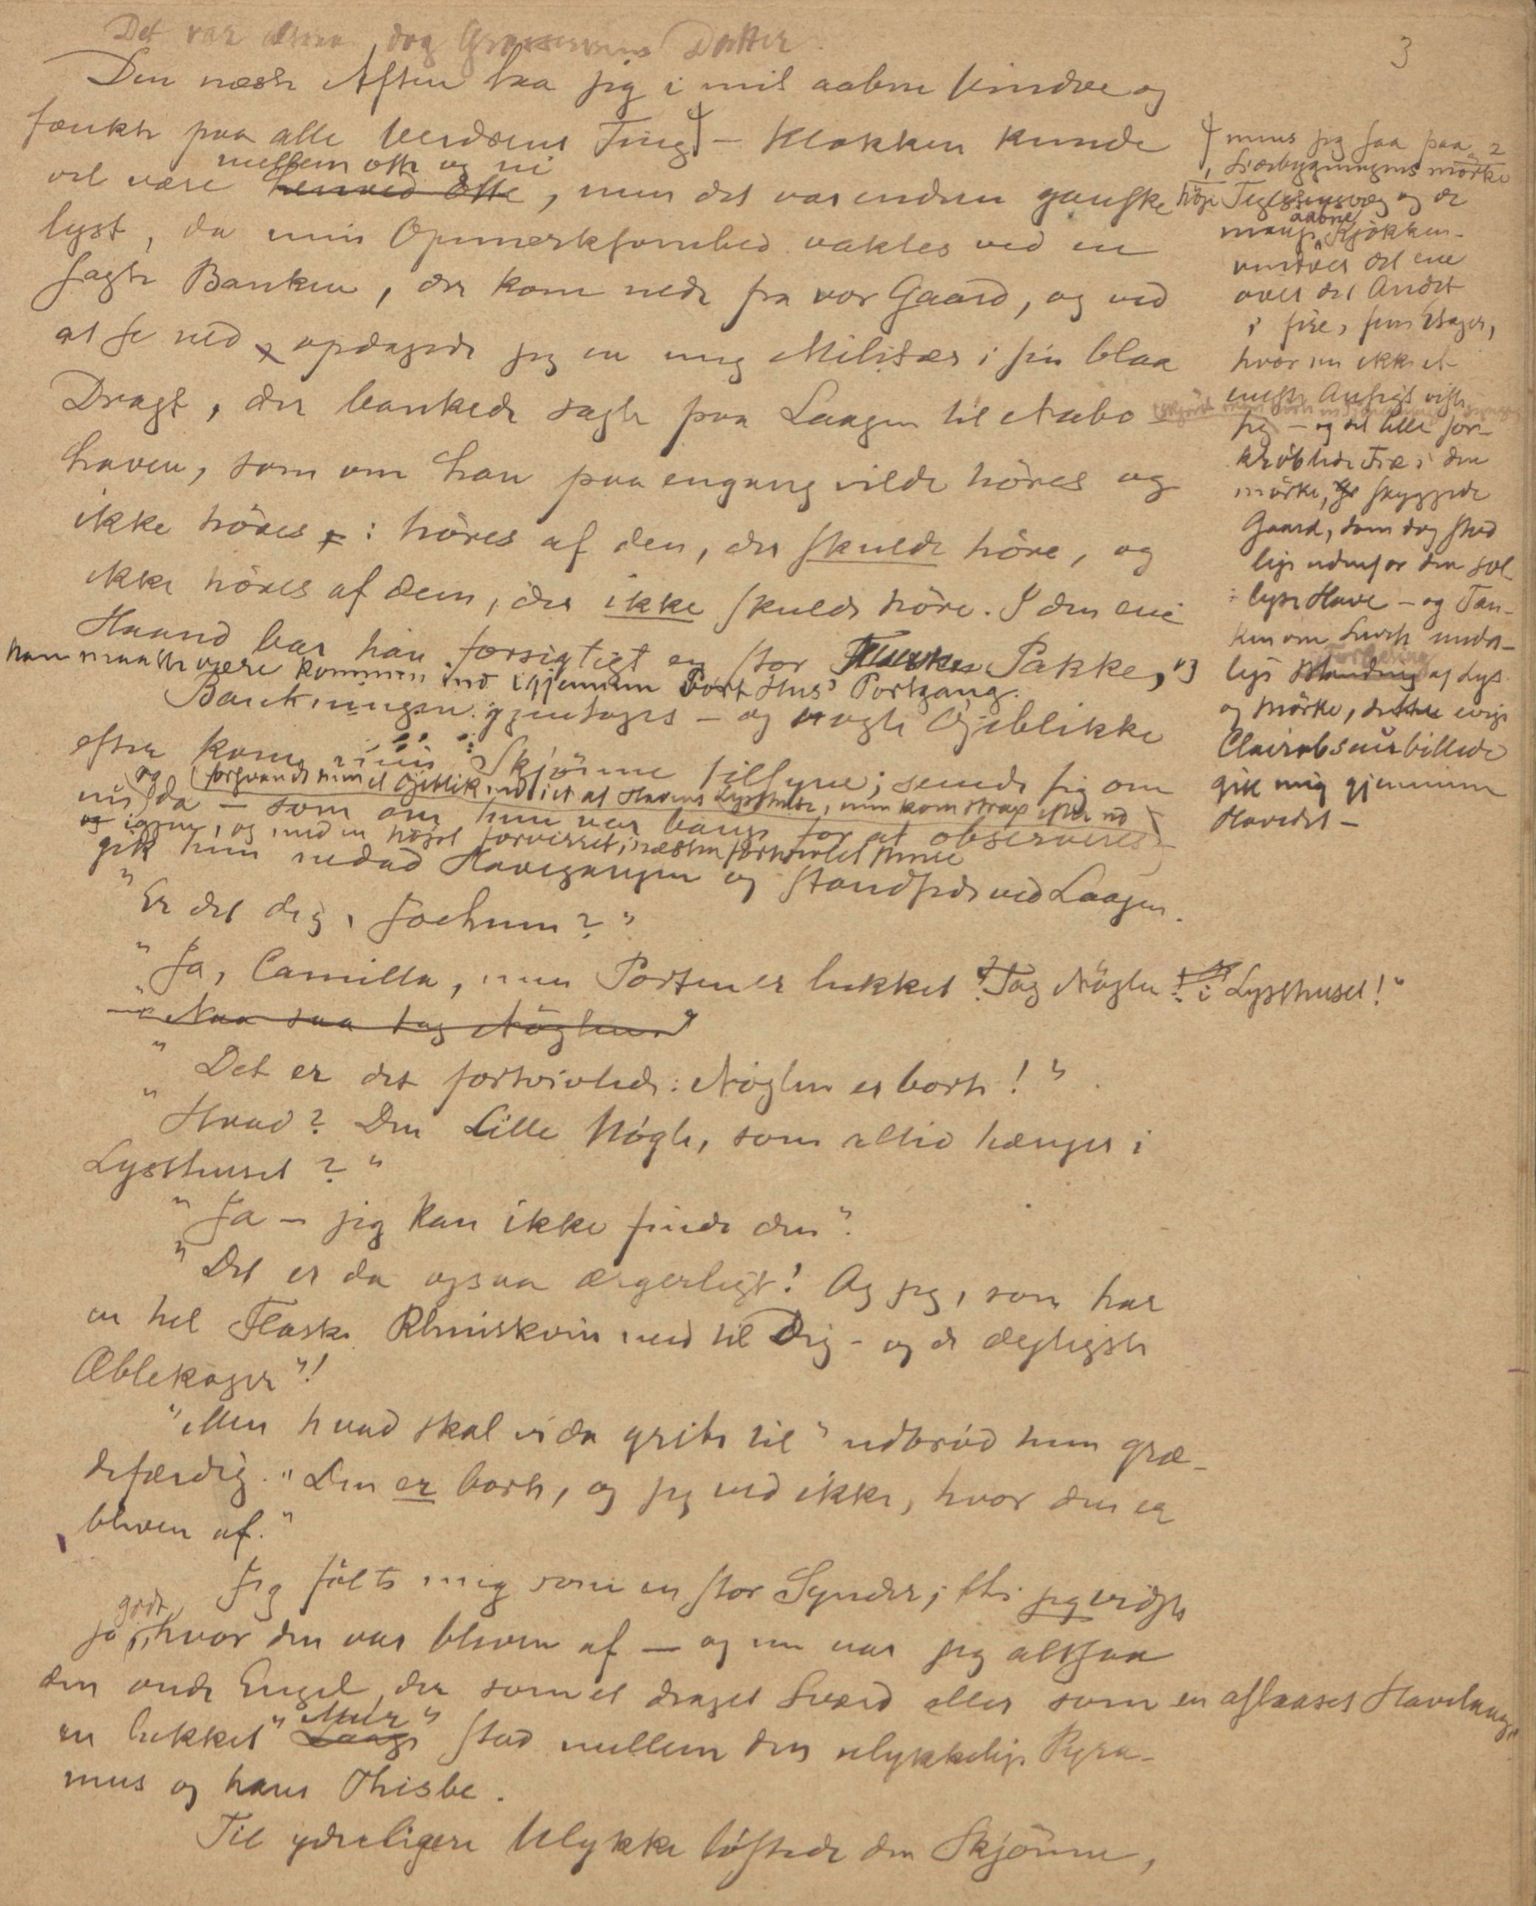 Det var altsaa dog Grossererens Datter.
3
Den næste Aften laa jeg i mit aabne Vindve og
tænkte paa alle Verdens Ting – Klokken kunde
vel være henved otte, men det var endnu ganske
mellem otte og ni
lyst, da min Opmærksomhed vaktes ved en
sagte Banken, der kom nede fra vor Gaard, og ved
at se ned opdagede jeg en ung Militær i sin blaa
Dragt, der bankede sagte paa Laagen til Nabo-
haven, som om han paa engang vilde höres og
ikke höres : höres af den, der skulde höre, og
ikke höres af dem, der ikke skulde höre. I den ene
Haand bar han forsigtigt en stor Pakke,
han maatte være kommen ind igjennem vort Hus' Portgang.
Bankningen gjentoges – og nogle Öjeblikke
efter kom min Skjönne tilsyne; saade sig om
og forsvandt som et Öjeblik ind i et af Havens Lysthuse, men kom strax efter ud
nu og da – som om hun var bange for at observeres
igjen, og med en höjst forvirret, næsten fortvivlet Mine
gik hun nedad Havegangen og standsede ved Laagen.
"Er det dig, Jochum?"
"Ja, Camilla, men Porten er lukket! Tag Nöglen i Lysthuset!"
"Naa saa tag Nöglen"
"Det er det fortvivlede: Nöglen er borte!"
"Hvad? Den lille Nögle, som altid hænger i
Lysthuset?"
"Ja – jeg kan ikke finde den".
"Det er da ogsaa ærgerligt! Og jeg, som har
en hel Flaske Rhinskvin med til Dig – og de dejligste
Æblekager"!
"Men hvad skal vi da gribe til" udbröd hun græ-
defærdig. "Den er borte, og jeg ved ikke, hvor den er
bleven af."
Jeg fölte mig som en stor Synder; thi jeg vidste
jo godt, hvor den var bleven af – og nu var jeg altsaa
den onde Engel, der som et draget Sværd eller som en aflaaset Havelaage
en lukket "Laage
Mur"
stod mellem den ulykkelige Pyra-
mus og hans Thisbe.
Til yderligere Ulykke löftede den Skjönne,
mens jeg saa paa
Sidebygningens mörke
höje Teglstensvæg og de
mange aabne Kjökken-
vinduer det ene
over det Andet
i fire, fem Etager,
hvor nu ikke et
eneste Ansigt viste
sig – og det lille for-
kröblede Træ i den
mörke, skyggede
Gaard, som dog stod
lige udenfor den sol-
lyse Have – og Tan-
ken om Livets underlige
Blanding af Lys
og Mörke, dette evige
Clairobscurbillede
gik mig gjennem
Hovedet –